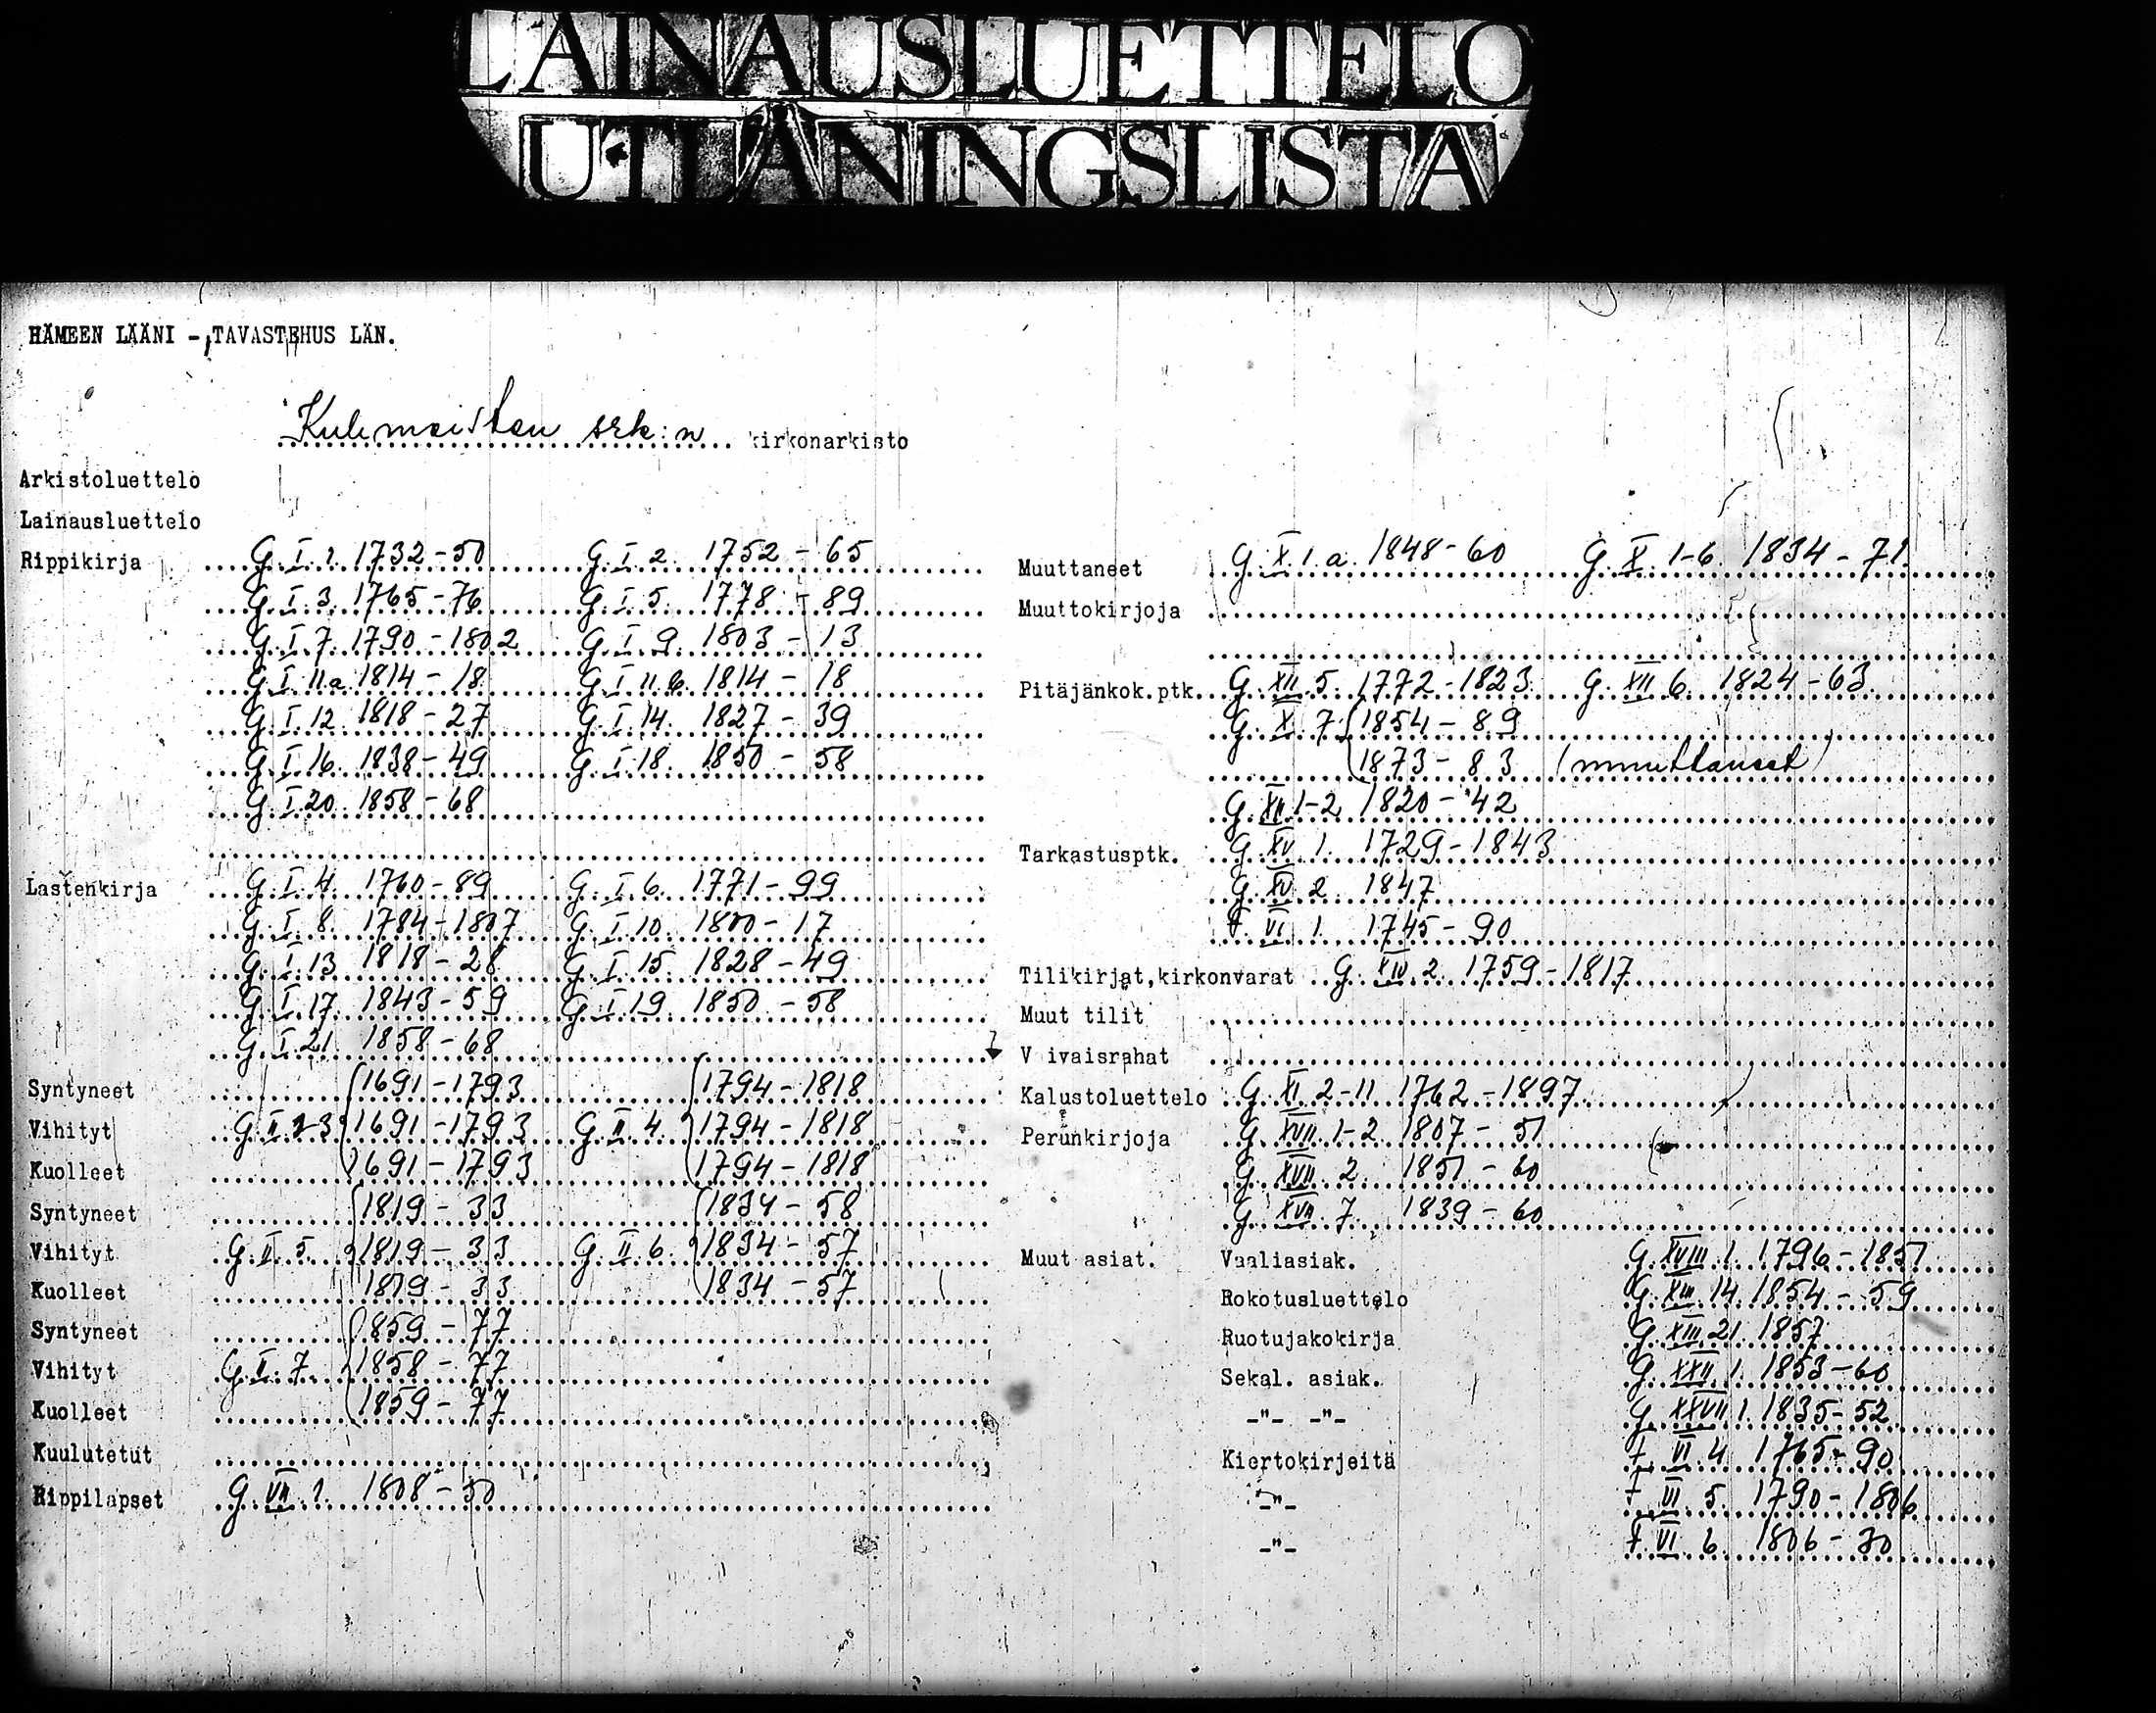 LAINAUSLUETTELO
UTLÅNINGSLISTA
HÄMEEN LÄÄNI - TAVASTEHUS LÄN.
Kuhmoisten srk:n kirkonarkisto
Arkistoluettelo
Lainausluettelo
Rippikirja G. I. 1. 1732-50 G. I. 2. 1752-65
G. I. 3. 1765-76 G. I. 5. 1778-89
G. I. 7. 1790-1802 G. I. 9. 1803-13
G. I. 11.a 1814-18 G. I. 11.b. 1814-18
G. I. 12. 1818-27 G. I. 14. 1827-39
G. I. 16. 1838-49 G. I. 18. 1850-58
G. I. 20. 1858-68
Lastenkirja G. I. 4. 1760-89 G. I. 6. 1771-99
G. I. 8. 1784-1807 G. I. 10. 1800-17
G. I. 13. 1818-28 G. I. 15. 1828-49
G. I. 17. 1843-59 G. I. 19. 1850-58
G. I. 21. 1858-68
Syntyneet 1691-1793 1794-1818
Vihityt G. II. 2-3 1691-1793 G. II. 4. 1794-1818
Kuolleet 1691-1793 1794-1818
Syntyneet 1819-33 1834-58
Vihityt G. II. 5. 1819-33 G. II. 6. 1834-57
Kuolleet 1819-33 1834-57
Syntyneet 1859-77
Vihityt G. II. 7. 1858-77
Kuolleet 1859-77
Kuulutetut
Rippilapset G. VII. 1. 1808-50
Muuttaneet G. X. 1. a. 1848-60 G. X. 1-6. 1834-71.
Muuttokirjoja
Pitäjänkok.ptk. G. XII. 5. 1772-1823 G. XII. 6. 1824-63.
G. X. 7. 1854-89
1873-83 (muuttaneet)
G. XII. 1-2. 1820-42
Tarkastusptk. G. XV. 1. 1729-1843
G. XV. 2. 1847
F. VI. 1. 1745-90
Tilikirjat,kirkonvarat G. XIV. 2. 1759-1817
Muut tilit
V ivaisrahat
Kalustoluettelo G. XI. 2-11 1762-1897
Perunkirjoja G. XVII. 1-2. 1807-51
G. XVII. 2. 1851-60
G. XVII. 7. 1839-60
Muut asiat. Vaaliasiak. G. XVIII. 1. 1796-1851
Rokotusluettelo G. XIII. 14. 1854-59
Ruotujakokirja G. XIII. 21. 1857
Sekal. asiak. G. XXII. 1. 1853-60
-"- -"- G. XXVII. 1. 1835-52
Kiertokirjeitä F. VI. 4. 1765-90
-"- F. VI. 5. 1790-1806
-"- F. VI. 6. 1806-30